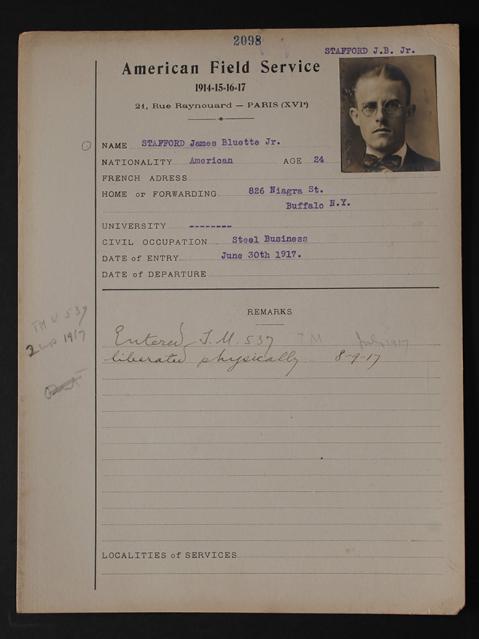 2098
STAFFORD J.B. Jr.
American Field Service
1914-15-16-17
21, Rue Raynouard — PARIS (XVIe)
NAME STAFFORD James Bluette Jr.
NATIONALITY American AGE 24
FRENCH ADRESS
HOME or FORWARDING 826 Niagra St.
Buffalo N.Y.
UNIVERSITY --------
CIVIL OCCUPATION Steel Business
DATE of ENTRY June 30th 1917.
DATE of DEPARTURE
REMARKS
TM U 537
1917
Entered T.M. 537 TM July 1917
liberated physically 8-9-17
LOCALITIES of SERVICES